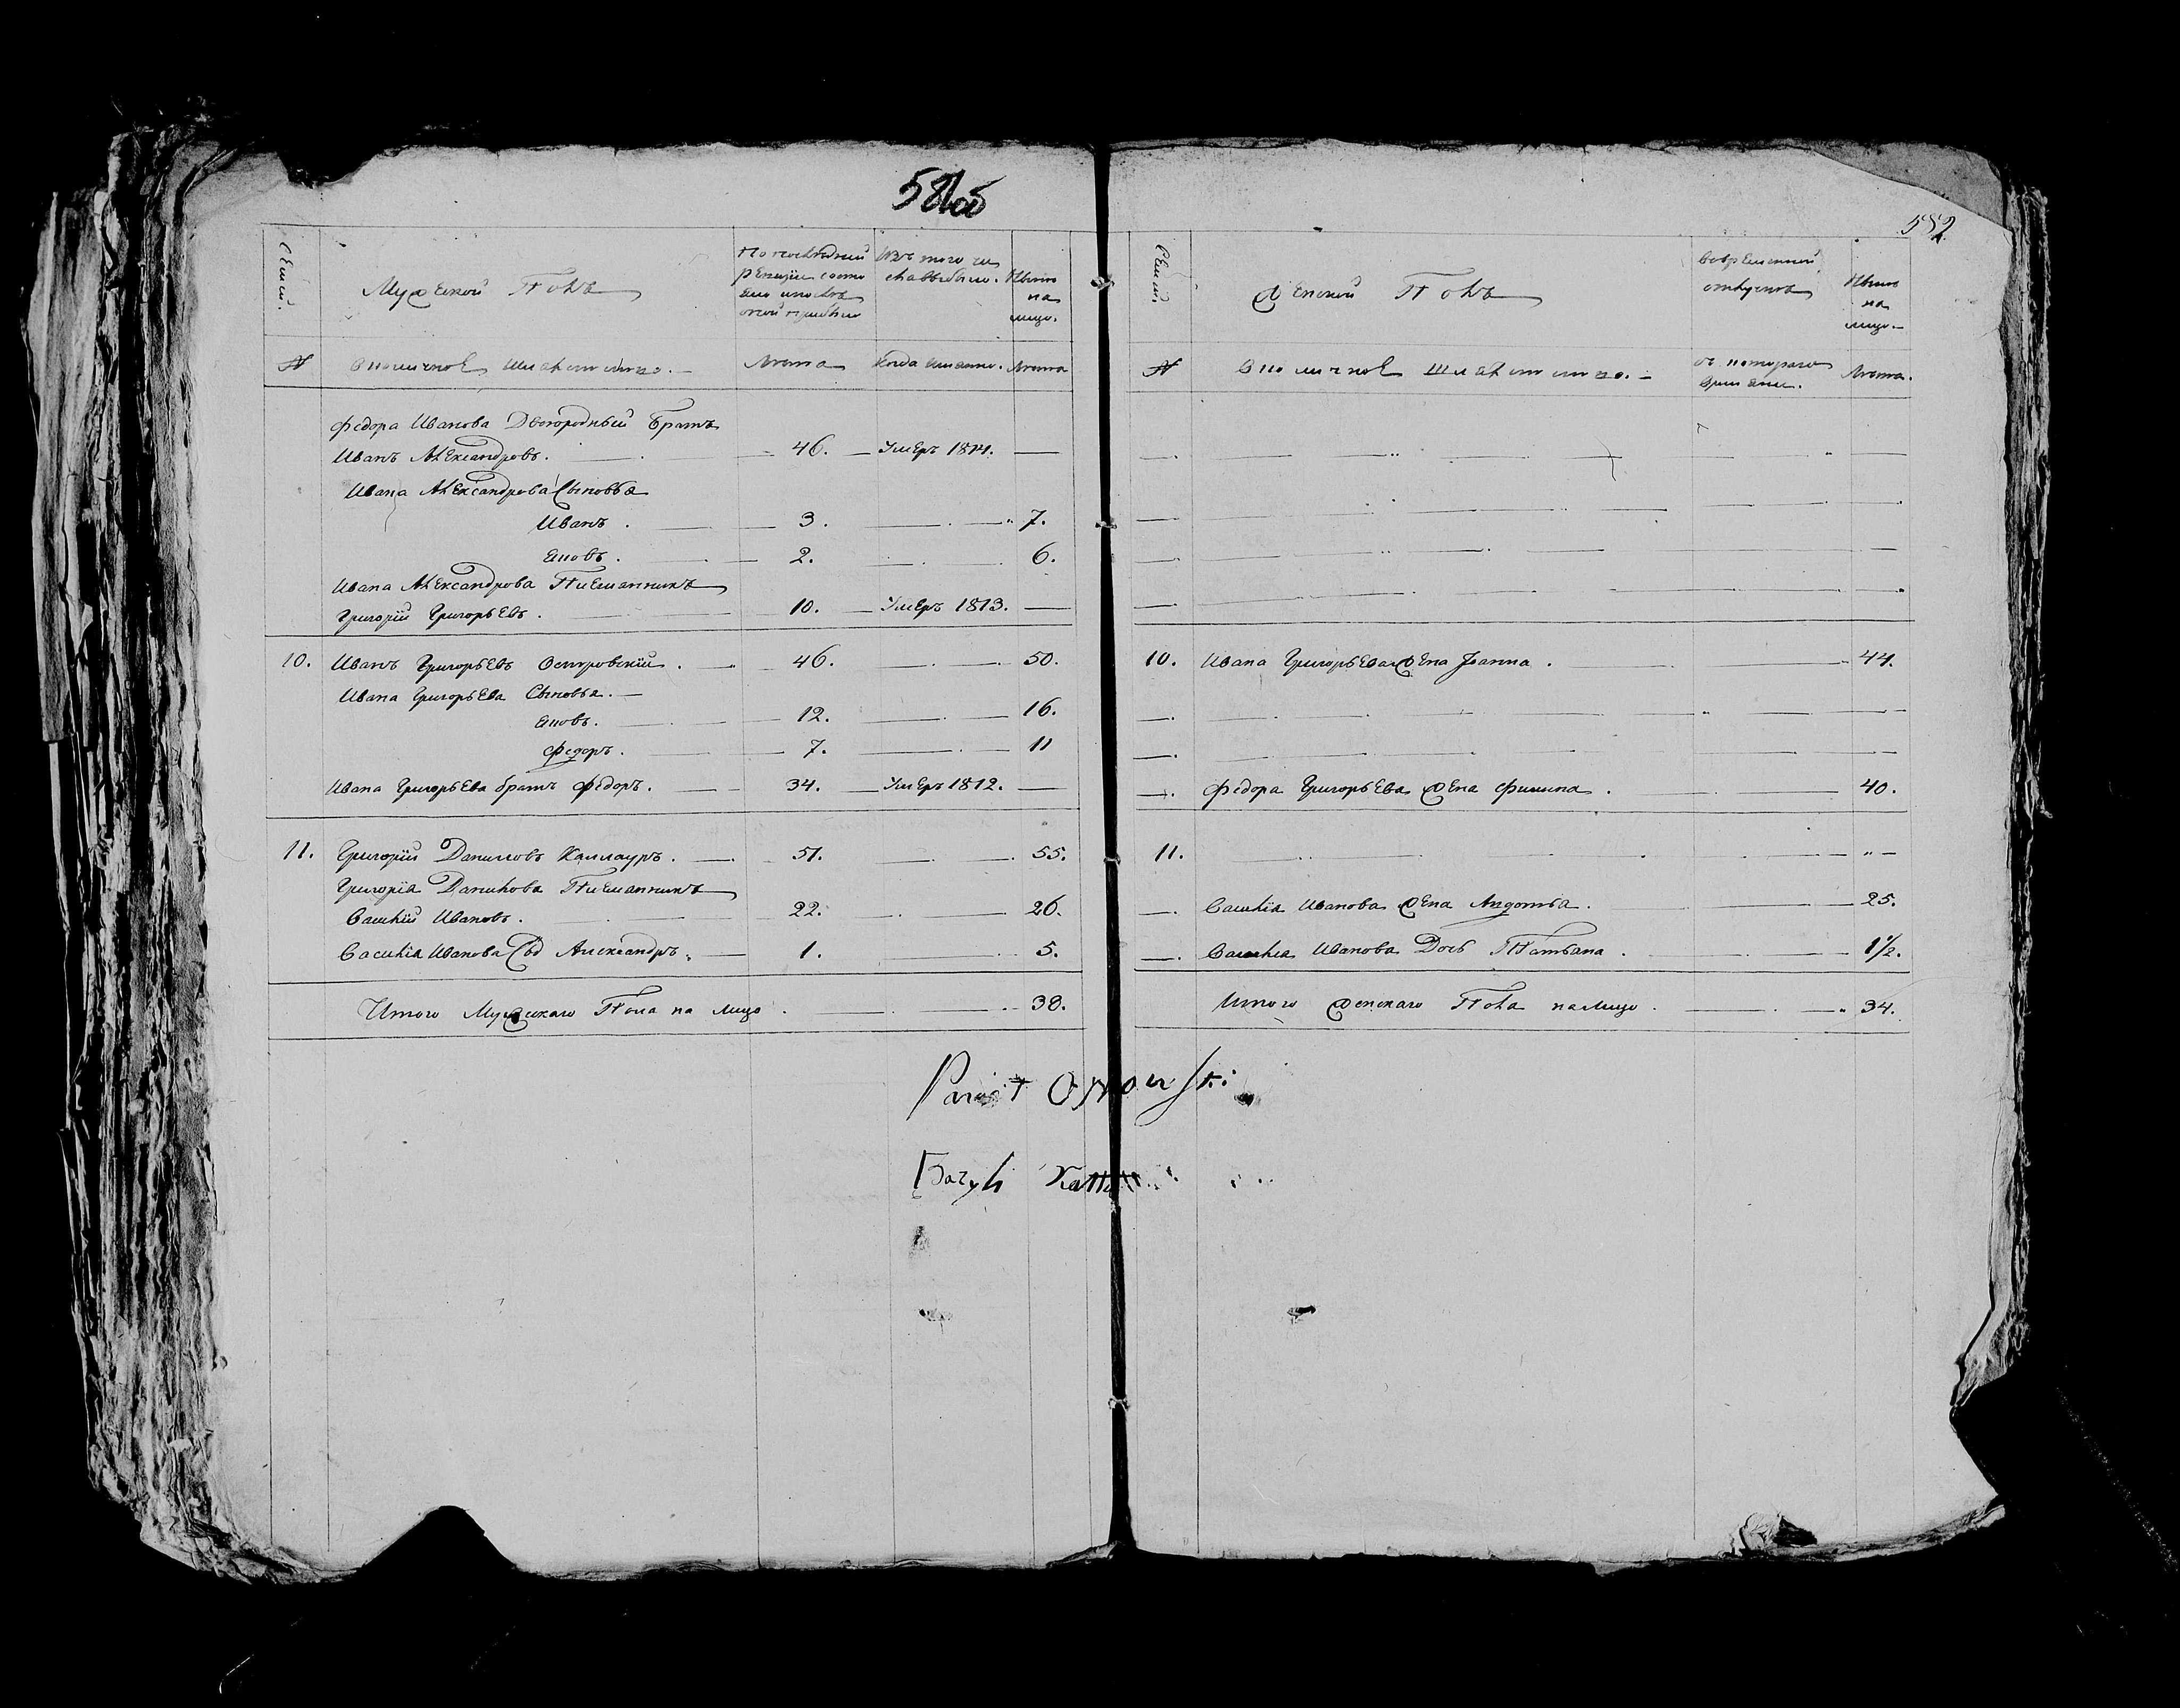 581об
582
Семьи.
Мужеской Полъ
По последней
ревизии состо
яло и после
оной прибыло
Изъ того чи
сла выбыло.
Ныне
на
лицо.
№
Околичной Шляхты
Лета
Когда именно.
Лета
Федора Иванова Двоюродный Братъ
Иванъ Александровъ. 46. Умеръ 1814.
Ивана Александрова Сыновья
Иванъ. 3. 7.
Яковъ. 2. 6.
Ивана Александрова Племянникъ
Григорій Григорьевъ. 10. Умеръ 1813.
10. Иванъ Григорьевъ Островскій. 46. 50.
Ивана Григорьева Сыновья.
Яковъ. 12. 16.
Федоръ. 7. 11
Ивана Григорьева братъ Федоръ. 34. Умеръ 1812.
11. Григорій Даниловъ Каллауръ. 51. 55.
Григорія Данилова Племянникъ
Василій Ивановъ. 22. 26.
Василія Иванова Сынъ Александръ. 1. 5.
Итого Мужескаго Пола на лицо 38.
Семьи.
Женской Полъ
Во временной
отлучке
Ныне
на
лицо.
№
Околичной Шляхты
съ котораго
времени.
Лета.
10. Ивана Григорьева Жена Жанна. 44.
Федора Григорьева Жена 40.
11.
Василія Иванова Жена Авдотья. 25.
Василія Иванова Дочь Татьяна. 1½.
Итого Женскаго Пола на лицо. 34.
Bazyli